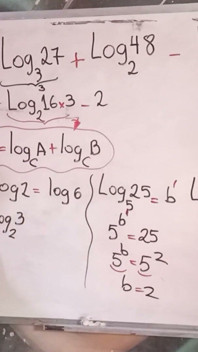 Log₃27 + Log₂48 -
3
Log₂16×3 - 2
= log_C A + log_C B
og2 = log6
og₂3
Log₅25 = b
5ᵇ = 25
5ᵇ = 5²
b = 2